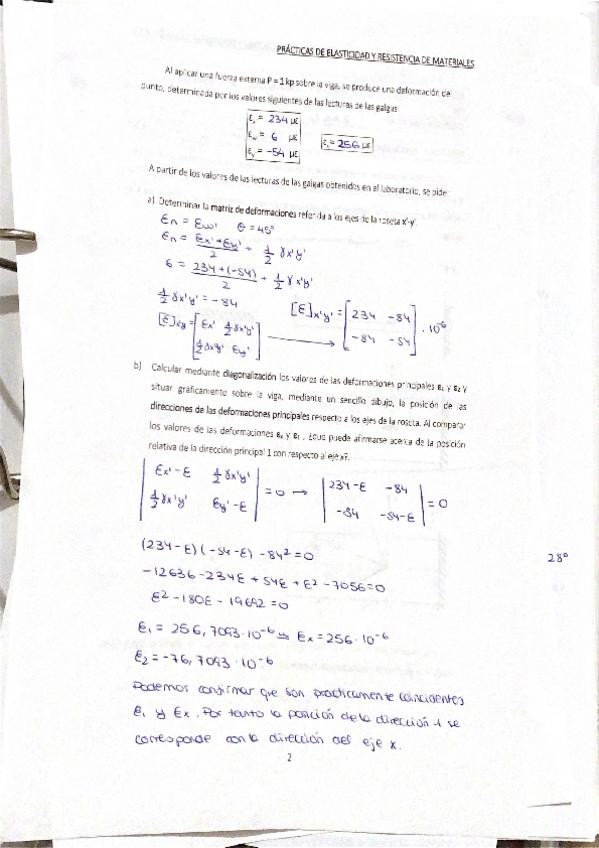 PRÁCTICAS DE ELASTICIDAD Y RESISTENCIA DE MATERIALES
Al aplicar una fuerza externa P = 1 kp sobre la viga, se produce una deformación de
punto, determinada por los valores siguientes de las lecturas de las galgas:
= 234 με
= 6 με
= -54 με
= 256 με
A partir de los valores de las lecturas de las galgas obtenidos en el laboratorio, se pide:
a) Determinar la matriz de deformaciones referida a los ejes de la roseta x'-y'.
εn = εω' θ = 45°
εn = (εx' + εy')/2 + 1/2 γx'y'
6 = (234 + (-54))/2 + 1/2 γx'y'
1/2 γx'y' = -84
[ε]xy = [εx' 1/2 γx'y'
1/2 γx'y' εy']
[ε]x'y' = [234 -84
-84 -54] · 10⁻⁶
b) Calcular mediante diagonalización los valores de las deformaciones principales ε₁ y ε₂ y
situar gráficamente sobre la viga, mediante un sencillo dibujo, la posición de las
direcciones de las deformaciones principales respecto a los ejes de la roseta. Al comparar
los valores de las deformaciones εx y ε₁, ¿qué puede afirmarse acerca de la posición
relativa de la dirección principal 1 con respecto al eje x?.
|εx' - ε 1/2 γx'y'
1/2 γx'y' εy' - ε| = 0 → |234 - ε -84
-84 -54 - ε| = 0
(234 - ε)(-54 - ε) - 84² = 0
28°
-12636 - 234ε + 54ε + ε² - 7056 = 0
ε² - 180ε - 19692 = 0
ε₁ = 256,7093 · 10⁻⁶ ≈ εx = 256 · 10⁻⁶
ε₂ = -76,7093 · 10⁻⁶
Podemos confirmar que son practicamente coincidentes
ε₁ y εx. Por tanto la posición de la dirección 1 se
corresponde con la dirección del eje x.
2